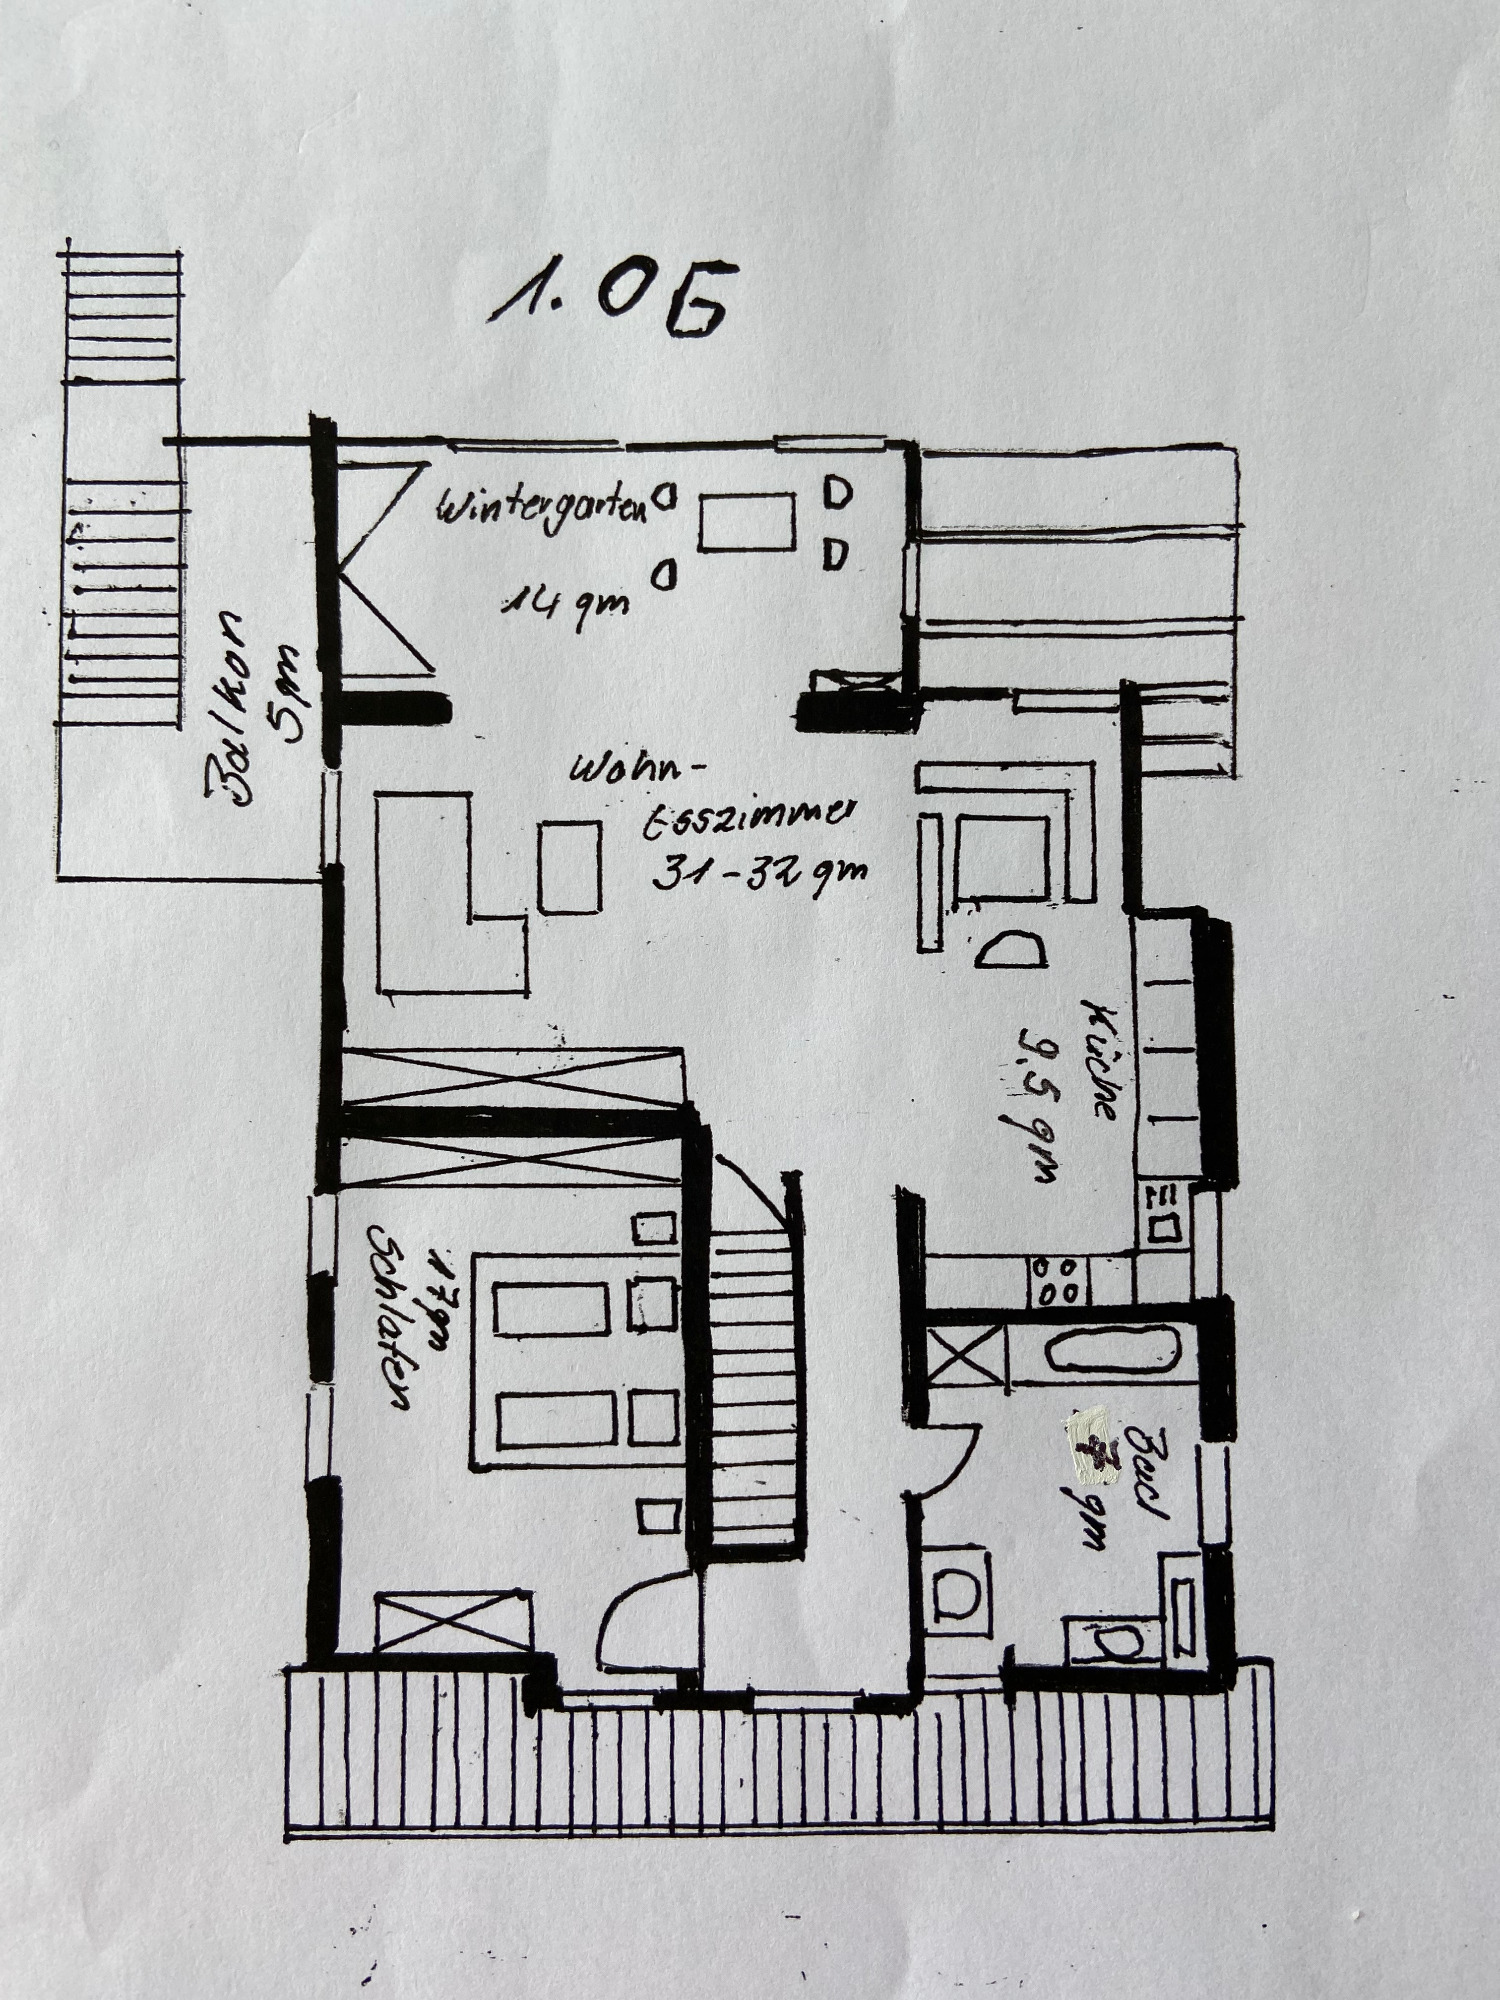 1. OG
Wintergarten
14 qm
Balkon
5qm
Wohn-
Esszimmer
31-32 qm
Küche
9,5 qm
17qm
Schlafen
Bad
7 qm